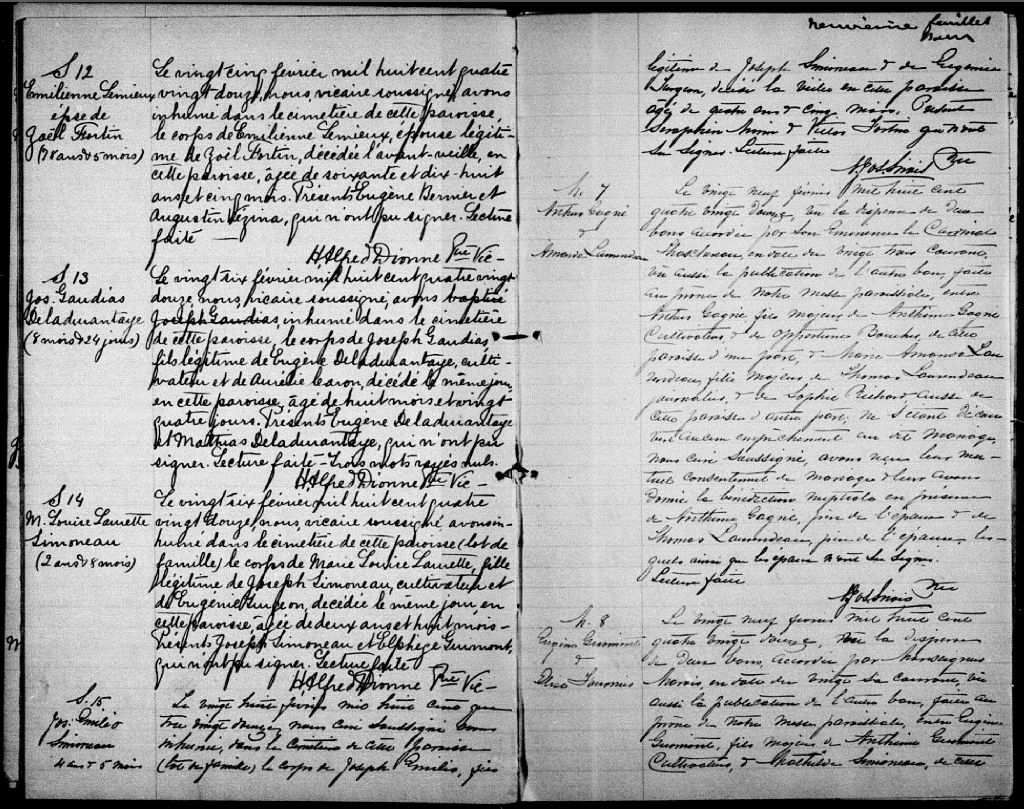 S 12
Emilienne Lemieux
épse de
Zoël Fortin
(78 ans & 5 mois)
Le vingt cinq février mil huit cent quatre
vingt douze, nous, vicaire soussigné, avons
inhumé dans le cimetière de cette paroisse,
le corps de Emilienne Lemieux, épouse légiti-
me de Zoël Fortin, décédée l'avant-veille, en
cette paroisse, âgée de soixante et dix-huit
ans et cinq mois. Présents Eugène Bernier et
Augustin Vézina, qui n'ont pu signer. Lecture
faite —
H. Alfred Dionne Ptre Vic-
S 13
Jos. Gaudias
Deladurantaye
(8 mois & 24 jours)
Le vingt six février mil huit cent quatre vingt
douze, nous, vicaire soussigné, avons baptisé
Joseph Gaudias, inhumé dans le cimetière
de cette paroisse, le corps de Joseph Gaudias,
fils légitime de Eugène Deladurantaye, culti-
vateur et de Aurélie Caron, décédé le même jour
en cette paroisse, âgé de huit mois et vingt
quatre jours. Présents Eugène Deladurantaye
et Mathias Deladurantaye, qui n'ont pu
signer. Lecture faite - Trois mots rayés nuls.
H. Alfred Dionne Ptre Vic-
S 14
M. Louise Laurette
Simoneau
(2 ans & 8 mois)
Le vingt six février mil huit cent quatre
vingt douze, nous, vicaire soussigné avons in-
humé dans le cimetière de cette paroisse (lot de
famille) le corps de Marie Louise Laurette, fille
légitime de Joseph Simoneau, cultivateur et
de Eugénie Turgeon, décédée le même jour, en
cette paroisse, âgée de deux ans et huit mois -
Présents Joseph Simoneau et Elphège Guimont,
qui n'ont pu signer. Lecture faite
H. Alfred Dionne Ptre Vic-
S. 15
Jos. Emilio
Simoneau
4 ans & 5 mois
Le vingt huit février mil huit cent qua
tre vingt douze, nous curé soussigné avons
inhumé, dans le cimetière de cette paroisse
(lot de famille) le corps de Joseph Emilio, fils
neuvième feuillet
légitime de Joseph Simoneau & de Eugénie
Turgeon, décédé la veille en cette paroisse
âgé de quatre ans & cinq mois. Présents
Séraphin & Fortin qui n'ont
su signer. Lecture faite
Ptre
M. 7
Arthur Gagné
&
Amanda Laurendeau
Le vingt neuf février mil huit cent
quatre vingt douze, vu la dispense de deux
bans accordée par Son Eminence le Cardinal
Taschereau, en date du vingt trois courant,
vu aussi la publication de l'autre ban, faite
au prône de notre messe paroissiale, entre
Arthur Gagné, fils majeur de Anthime Gagné
Cultivateur, & de Opportune Boucher, de cette
paroisse d'une part, & Marie Amanda Lau
rendeau, fille majeure de Thomas Laurendeau
journalier, & de Sophie Richard, aussi de
cette paroisse d'autre part; ne s'étant décou
vert aucun empêchement au dit mariage,
nous curé soussigné, avons reçu leur mu-
tuel consentement de mariage & leur avons
donné la bénédiction nuptiale en présence
de Anthime Gagné, père de l'époux & de
Thomas Laurendeau, père de l'épouse, les-
quels ainsi que les époux n'ont su signer.
Lecture faite
Ptre
M. 8
Eugène Guimont
&
Eliza Fournier
Le vingt neuf février mil huit cent
quatre vingt douze, vu la dispense
de deux bans, accordée par Monseigneur
Marois, en date du vingt six courant, vu
aussi la publication de l'autre ban, faite au
prône de notre messe paroissiale, entre Eugène
Guimont, fils majeur de Anthime Guimont
Cultivateur, & Mathilde Simoneau, de cette